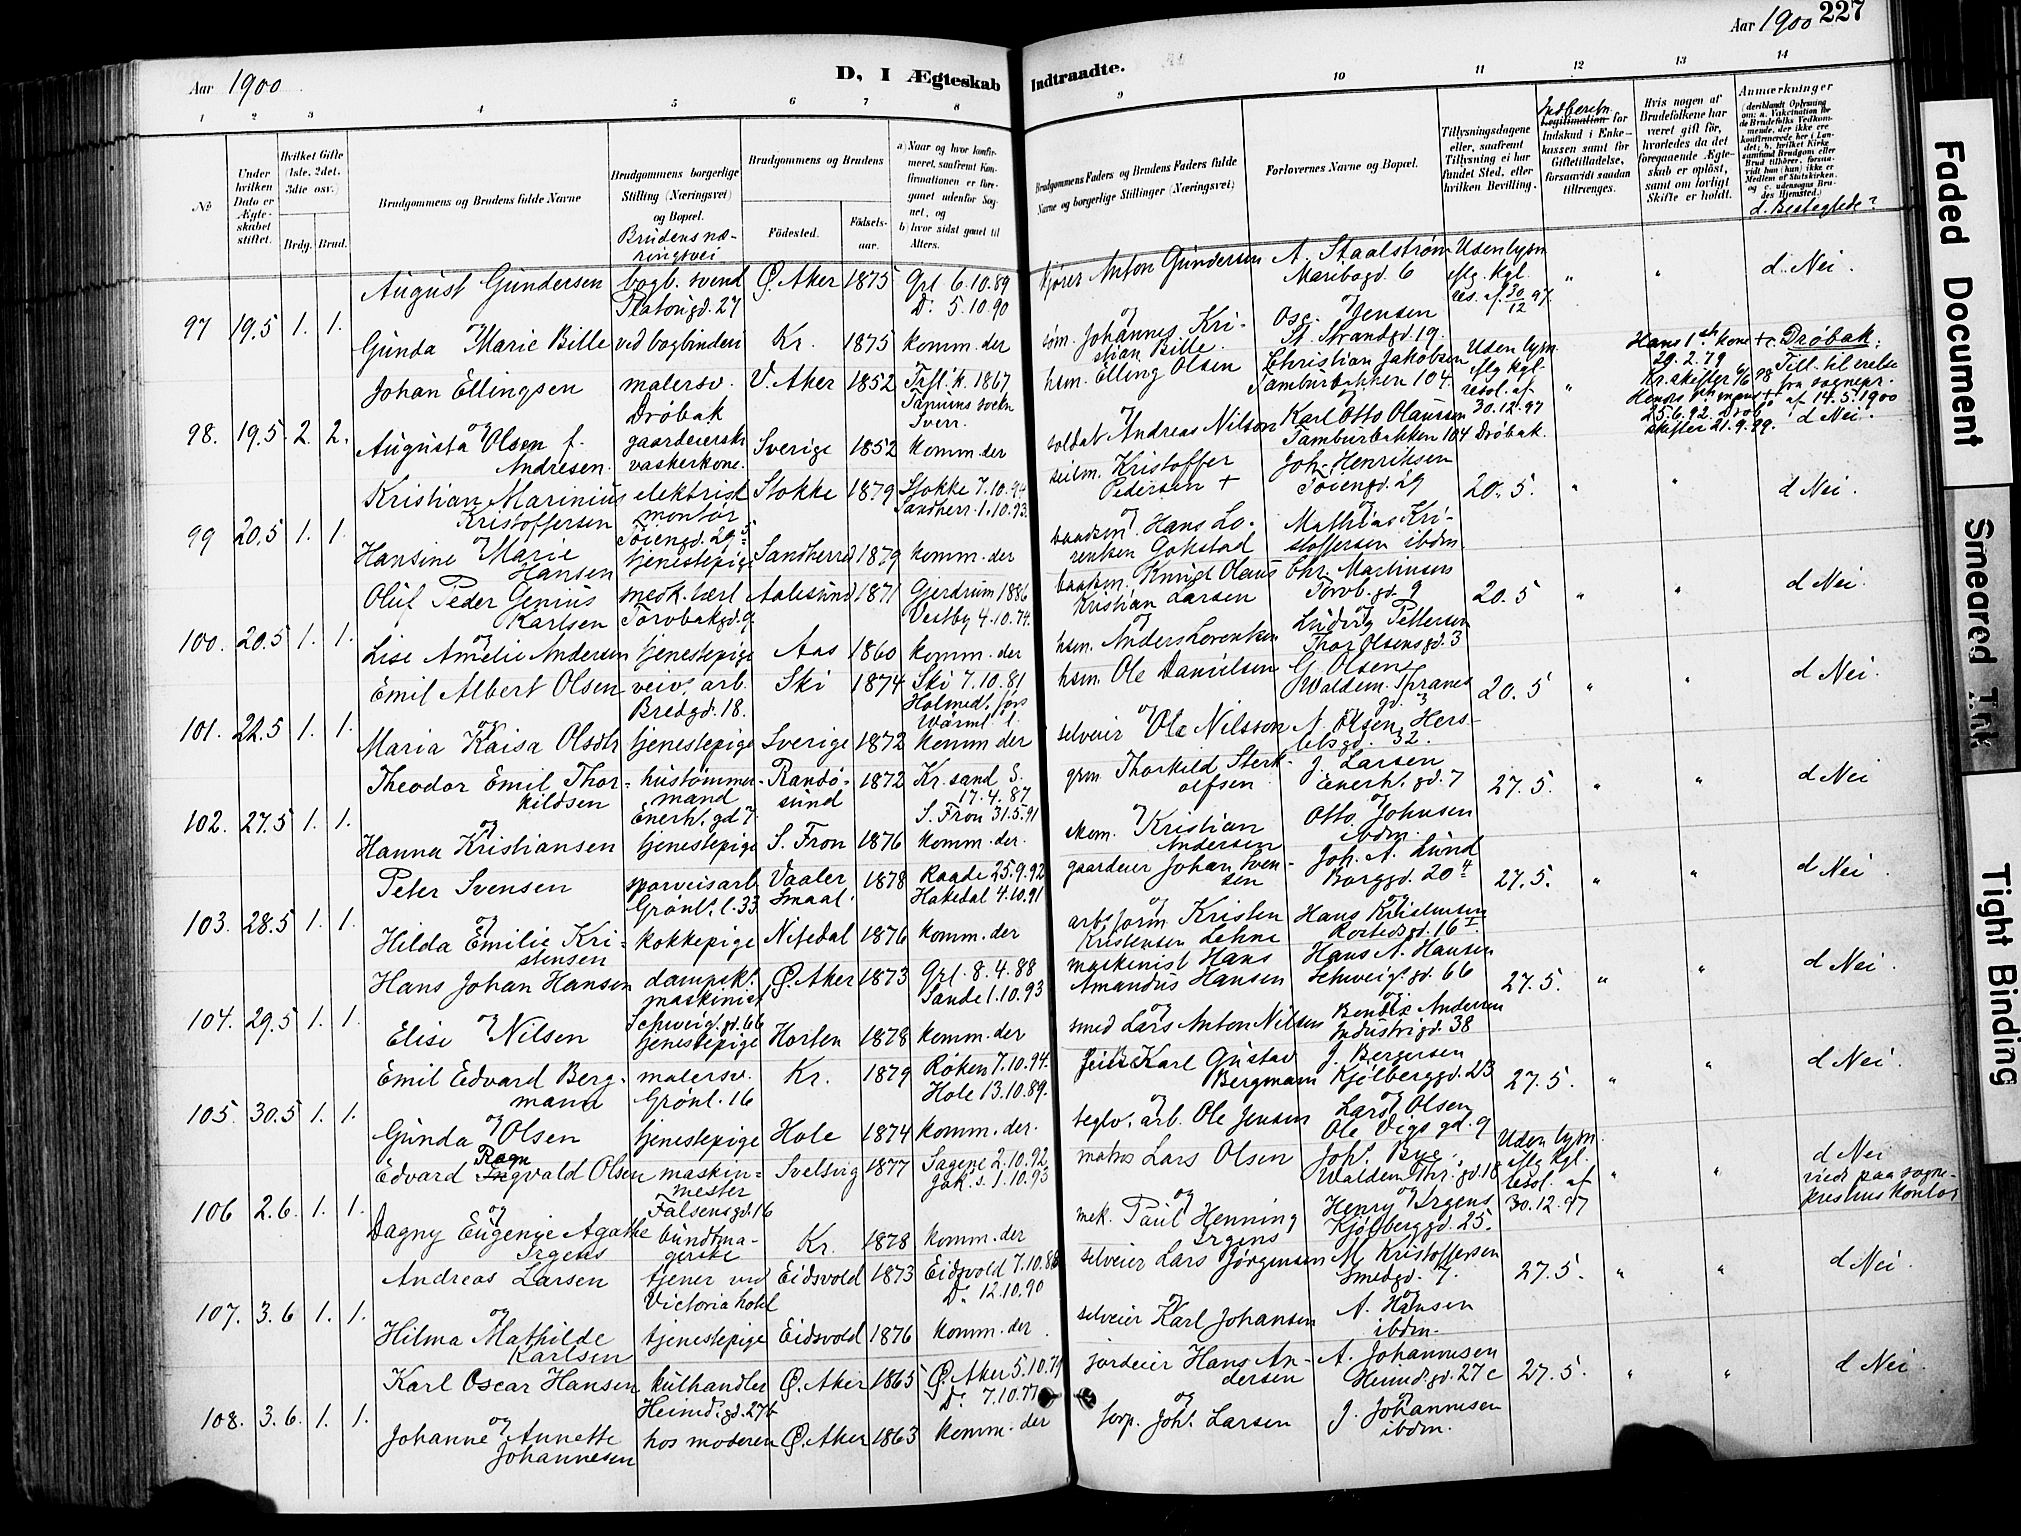 Aar 1900
D, I Ægteskab
Indtraadte.
Aar 1900 227
1 2 3 4 5 6 7 8 9 10 11 12 13 14
No
Under hvilken Dato er Ægteskabet stiftet.
Hvilket Gifte (1ste, 2det, 3die osv.)
Brdg. Brud.
Brudgommens og Brudens fulde Navne
Brudgommens borgerlige Stilling (Næringsvei) og Bopæl.
Brudens næringsvei
Brudgommens og Brudens
Födested.
Födselsaar.
a) Naar og hvor konfirmeret, saafremt Konfirmationen er foregaaet udenfor Sognet, og
b) hvor sidst gaaet til Alters.
Brudgommens Faders og Brudens Faders fulde Navne og borgerlige Stillinger (Næringsvei)
Forlovernes Navne og Bopæl.
Tillysningsdagene eller, saafremt Tillysning ei har fundet Sted, efter hvilken Bevilling.
Indberetn.
Legitimation for Indskud i Enkekassen samt for Giftetilladelse, forsaavidt saadan tiltrænges.
Hvis nogen af Brudefolkene har været gift før, hvorledes da det foregaaende Ægteskab er opløst, samt om lovligt Skifte er holdt.
Anmærkninger
(deriblandt Oplysning om: a. Vakcination for de Brudefolks Vedkommende, der ikke ere konfirmerede her i Landet; b. hvilket Kirkesamfund Brudgom eller Brud tilhører, forsaavidt han (hun) ikke er Medlem af Statskirken, og c. udensogns Brudes Hjemsted.)
d. Beslegtede?
97 19.5 1. 1.
August Gundersen bogb. svend Ø. Aker 1875 Grl 6.10.89 kjører Anton Gundersen A. Staalstrøm Uden lysn. " " d. Nei.
Platousgd. 27 Do 5.10.90 Maribogd. 6 eflg. kgl.
og og Osc. Jensen res. af 30/12 97.
Gunda Marie Bille ved bogbinderi Kr. 1875 komm. der Johannes Kristian Bille. St. Strandgd. 19.
98. 19.5. 2. 2.
Johan Ellingsen malersv. V. Aker 1852 Trfl. k. 1867 hsm. Elling Olsen Christian Jakobsen Uden lysn. " Hans 1ste kone + c. Drøbak:
Drøbak Tanums sokn Tamburbakken 104. eflg kgl. 29.2.79 Till. til vielse
Sverr. resol. af 30.12.97 fra sognepr. af 14.5.1900
og Augusta Olsen f. Andresen. gaardeierske vaskerkone. Sverige 1852 komm. der soldat Andreas Nilson Karl Otto Olaussen Tamburbakken 104 Drøbak. 25.6.92. skifter 21.9.99. d Nei.
99 20.5 1. 1.
Kristian Marinius elektrisk Stokke 1879 Stokke 7.10.94 seilm. Kristoffer Joh. Henriksen 20.5. " " d Nei.
Kristoffersen montør Sandherr. 1.10.93. Pedersen + Tøiengd. 29
og Tøiengd. 29
Hansine Marie Hansen tjenestepige Sandherred 1879 komm. der baadsm. Hans Lorentsen Gokstad Mathias Kristoffersen ibdm.
100. 20.5 1. 1.
Oluf Peder Genius Karlsen smedk. værl Aalesund 1871 Gjerdrum 1886 baadsm. Knut Olaus Chr. Martinsen 20.5 " " d Nei.
Torvbakgd. 9. Vestby 4.10.74. Kristian Larsen Torvb. gd. 9
og og Ludvig Pettersen
Lise Amelie Andersen tjenestepige Aas 1860 komm. der hsm. Anders Lorentsen Thor Olsens gd. 3
101. 22.5 1. 1.
Emil Albert Olsen veiv. arb. Ski 1874 Ski 7.10.81 hsm. Ole Danielsen G. Olsen 20.5 " " d Nei.
Bredgd. 18. Waldem. Thranes gd. 3
og
Maria Kaisa Olsdtr tjenestepige Sverige 1872 komm der selveier Ole Nilsson N. Olsen, Herslebsgd. 32.
102. 27.5 1. 1.
Theodor Emil Thorkildsen hustømmermand Randøsund 1872 Kr. sand S. 17.4.87 grm. Thorkild Sterkolfsen J. Larsen 27.5. " " d Nei
Enerh. gd 7. S. Fron 31.5.91 Enerh. gd. 7
og og Otto Johnsen
Hanna Kristiansen tjenestepige S. Fron 1876 komm. der. Kristian Andersen ibdm.
103. 28.5 1. 1.
Peter Svensen sporveisarb. Vaaler 1878 Raade 25.9.92 gaardeier Johan Svensen Joh. A. Lund 27.5. " " d Nei.
Grønl. l. 33 Smaal. Hakedal 4.10.91 Borggd. 20
og
Hilda Emilie Kristensen kokkepige Nitedal 1876 komm. der arbsform Kristen Kristensen Lehne Hans Kristensen
104. 29.5 1. 1.
Hans Johan Hansen dampsk. maskinist Ø. Aker 1873 Grl. 8.4.88 maskinist Hans Amandus Hansen Hans A. Hansen 27.5. " " d Nei.
Schweig. gd. 66 Sande 1.10.93 Schweig. gd. 66
og
Elise Nilsen tjenestepige Horten 1878 komm. der smed Lars Anton Nilsen Bendix Andersen Industrigd. 38
105. 30.5 1. 1.
Emil Edvard Bergmann malersv. Kr. 1879 Røken 7.10.94. Karl Gustav Bergmann J. Bergersen 27.5. " " d Nei.
Grønl. 16 Hole 13.10.89. Kjølberggd. 23
og og Lars Olsen
Gunda Olsen tjenestepige Hole 1874 komm. der. teglv. arb. Ole Jensen Ole Vigs gd. 9
106 2.6. 1. 1.
Edvard Ragnvald Olsen maskinmester Svelvig 1877 Sagene 2.10.92 matros Lars Olsen Joh. Bye Uden lysn. " " d Nei
Falsensgd. 16 Jak. s. 1.10.93 Waldem. Thr. gd. 18 eflg kgl. resol. af 30.12.97 viede paa sogneprestens kontor
og og Henry Irgens
Dagny Eugenie Agathe Irgens buntmagerske Kr. 1878 komm. der mek. Paul Henning Irgens Kjølberggd. 25.
107. 3.6 1. 1.
Andreas Larsen tjener ved Eidsvold 1873 Eidsvold 7.10.88 selveier Lars Jørgensen M. Kristoffersen 27.5. " " d Nei.
Victoria hotel Do 12.10.90 Smedgd. 7.
og og
Hilma Mathilde Karlsen tjenestepige Eidsvold 1876 komm. der selveier Karl Johansen A. Hansen ibdm.
108. 3.6. 1. 1.
Karl Oscar Hansen kulhandler Ø. Aker 1865 Ø. Aker 5.10.79 jordeier Hans Andersen A. Johannesen 27.5. " " d Nei.
Heimd. gd. 27b Do 7.10.77 Heimd. gd. 27c
og og
Johanne Annette Johannesen hos moderen Ø. Aker 1863 komm. der korp. Joh. Larsen J. Johannesen ibdm.
Faded Document
Smeared Ink
Tight Binding